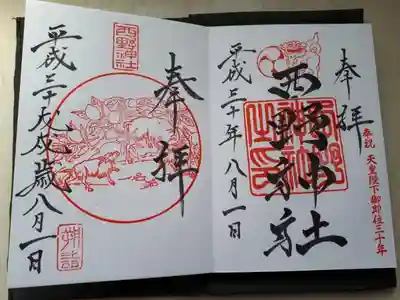 奉拝
奉祝 天皇陛下御即位三十年
西野神社
平成三十年八月一日
奉拝
西野神社
平成三十戊戌歳八月一日